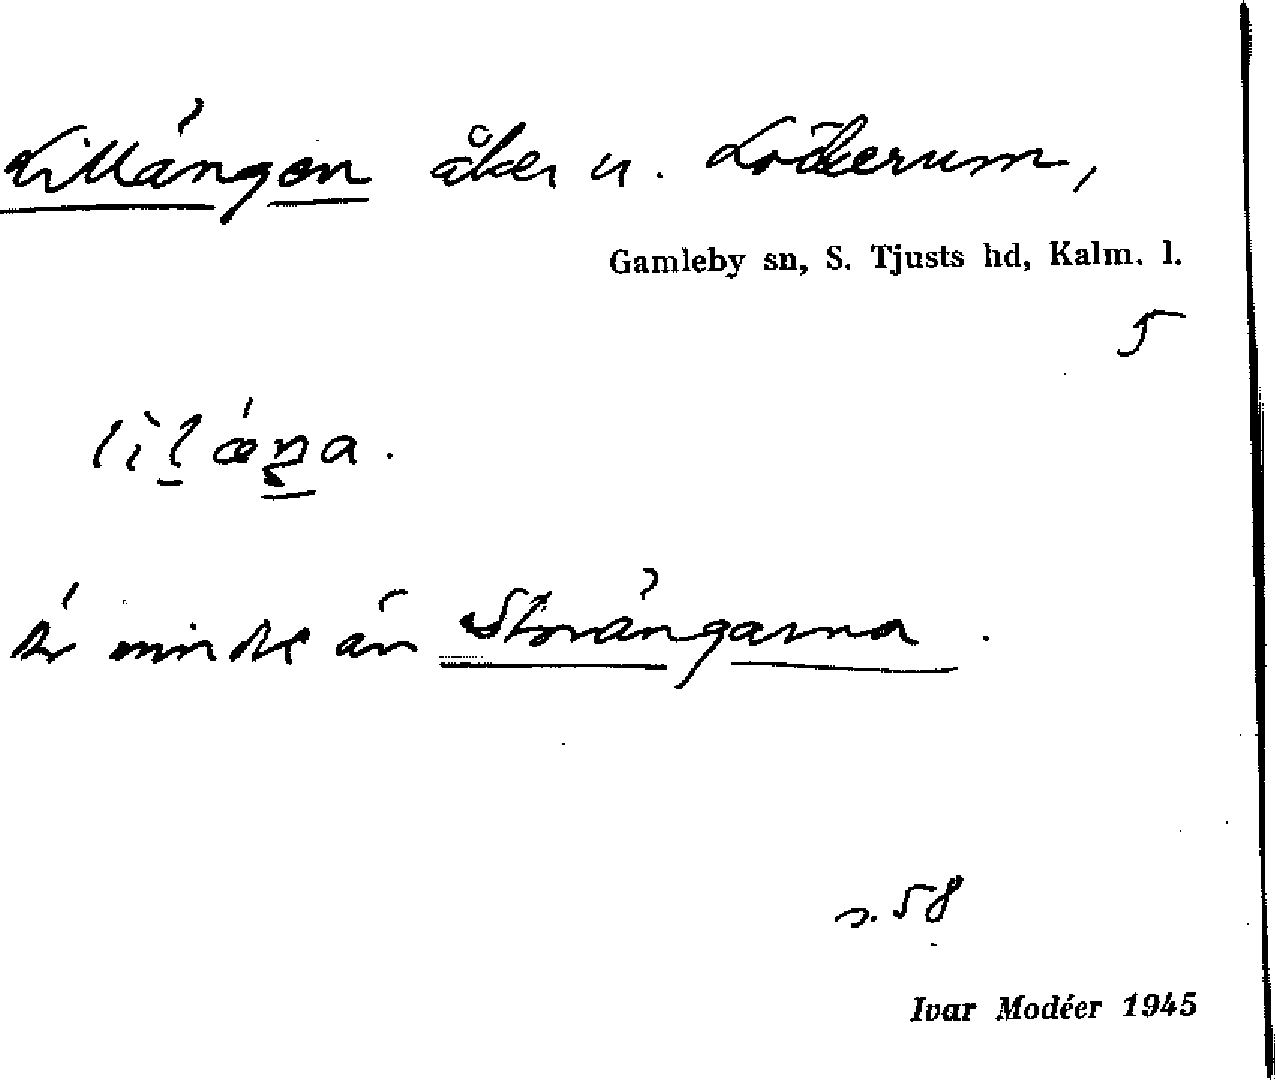 Lillängen åker u. Löckerum,
Gamleby sn, S. Tjusts hd, Kalm. l.
5
Är mindre än Storängarna.
s. 58
Ivar Modéer 1945